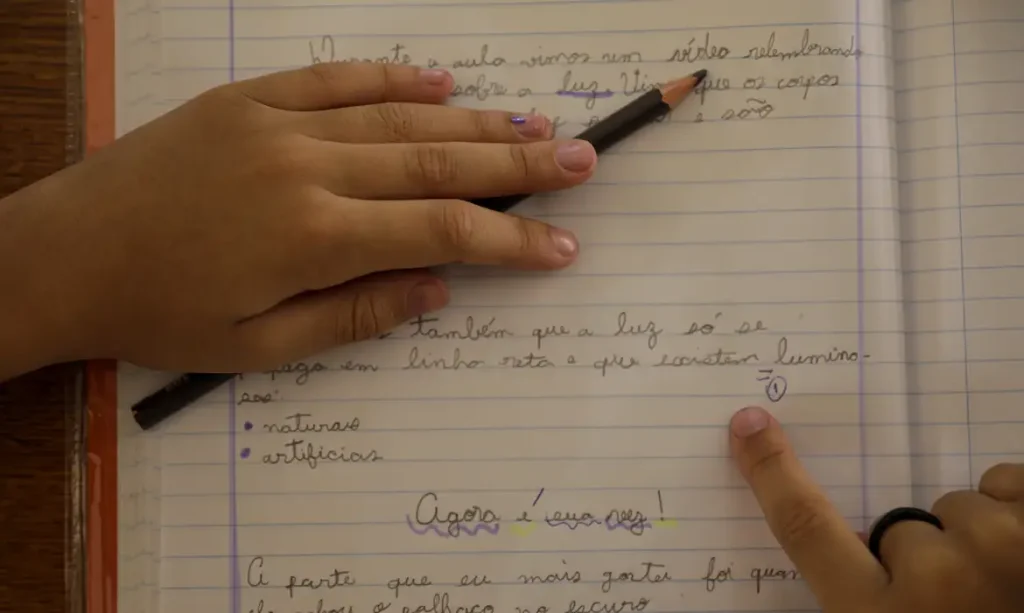 Durante a aula vimos um vídeo relembrando
sobre a luz. que os corpos
e são
também que a luz só se
em linha reta e que existem lumino-
sos:
= ①
• naturais
• artificias
Agora é sua vez!
A parte que eu mais gostei foi
o palhaço no escuro